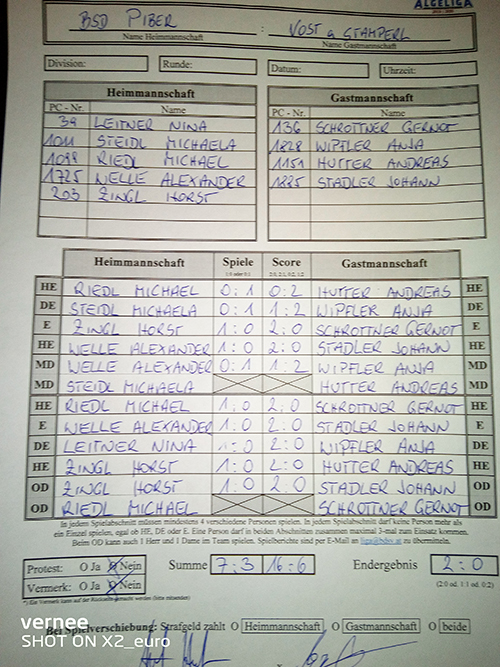 ALGELIGA
BSD PIBER : VOST a GTAMPERL
Name Heimmannschaft Name Gastmannschaft
Division: Runde: Datum: Uhrzeit:
Heimmannschaft Gastmannschaft
PC - Nr. Name PC - Nr. Name
39 LEITNER NINA 136 SCHROTTNER GERNOT
1011 STEIDL MICHAELA 1828 WIPFLER ANJA
1098 RIEDL MICHAEL 1151 HUTTER ANDREAS
1725 WELLE ALEXANDER 1885 STADLER JOHANN
203 ZINGL HORST
Heimmannschaft Spiele Score Gastmannschaft
1:0 oder 0:1 2:0, 2:1, 0:2, 1:2
HE RIEDL MICHAEL 0:1 0:2 HUTTER ANDREAS HE
DE STEIDL MICHAELA 0:1 1:2 WIPFLER ANJA DE
E ZINGL HORST 1:0 2:0 SCHROTTNER GERNOT E
HE WELLE ALEXANDER 1:0 2:0 STADLER JOHANN HE
MD WELLE ALEXANDER 0:1 1:2 WIPFLER ANJA MD
MD STEIDL MICHAELA HUTTER ANDREAS MD
HE RIEDL MICHAEL 1:0 2:0 SCHROTTNER GERNOT HE
E WELLE ALEXANDER 1:0 2:0 STADLER JOHANN E
DE LEITNER NINA 1:0 2:0 WIPFLER ANJA DE
HE ZINGL HORST 1:0 2:0 HUTTER ANDREAS HE
OD ZINGL HORST 1:0 2:0 STADLER JOHANN OD
OD RIEDL MICHAEL SCHROTTNER GERNOT OD
In jedem Spielabschnitt müssen mindestens 4 verschiedene Personen spielen. In jedem Spielabschnitt darf keine Person mehr als
ein Einzel spielen, egal ob HE, DE oder E. Eine Person darf in beiden Abschnitten zusammen maximal 3-mal zum Einsatz kommen.
Beim OD kann auch 1 Herr und 1 Dame im Team spielen. Spielberichte sind per E-Mail an liga@bdsv.at zu übermitteln.
Protest: O Ja O Nein Summe 7:3 16:6 Endergebnis 2:0
Vermerk: O Ja O Nein (2:0 od. 1:1 od. 0:2)
Bei Spielverschiebung: Strafgeld zahlt O Heimmannschaft O Gastmannschaft O beide
vernee
SHOT ON X2_euro